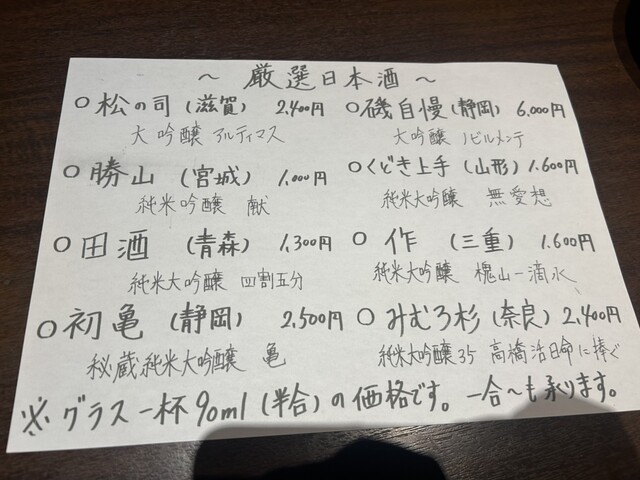 ～ 厳選日本酒 ～
○ 松の司 (滋賀) 2,400円
大吟醸 アルティマス
○ 勝山 (宮城) 1,000円
純米吟醸 献
○ 田酒 (青森) 1,300円
純米大吟醸 四割五分
○ 初亀 (静岡) 2,500円
秘蔵純米大吟醸 亀
○ 磯自慢 (静岡) 6,000円
大吟醸 ノビルメンテ
○ くどき上手 (山形) 1,600円
純米大吟醸 無愛想
○ 作 (三重) 1,600円
純米大吟醸 槐山一滴水
○ みむろ杉 (奈良) 2,400円
純米大吟醸35 高橋活日命に捧ぐ
※ グラス一杯90ml (半合) の価格です。一合～も承ります。